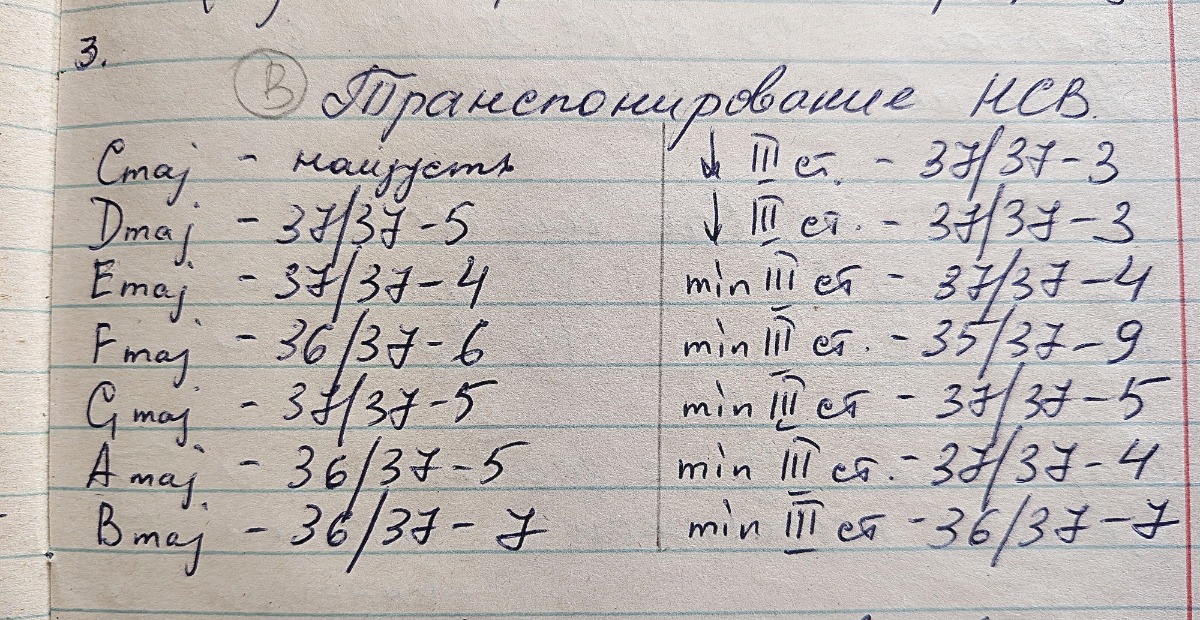 3.
В Транспонирование НСВ.
Cmaj - наизусть ↓ III ст. - 37/37-3
Dmaj - 37/37-5 ↓ III ст. - 37/37-3
Emaj - 37/37-4 min III ст - 37/37-4
Fmaj - 36/37-6 min III ст. - 35/37-9
Gmaj - 37/37-5 min III ст - 37/37-5
Amaj - 36/37-5 min III ст. - 37/37-4
Bmaj - 36/37-7 min III ст - 36/37-7